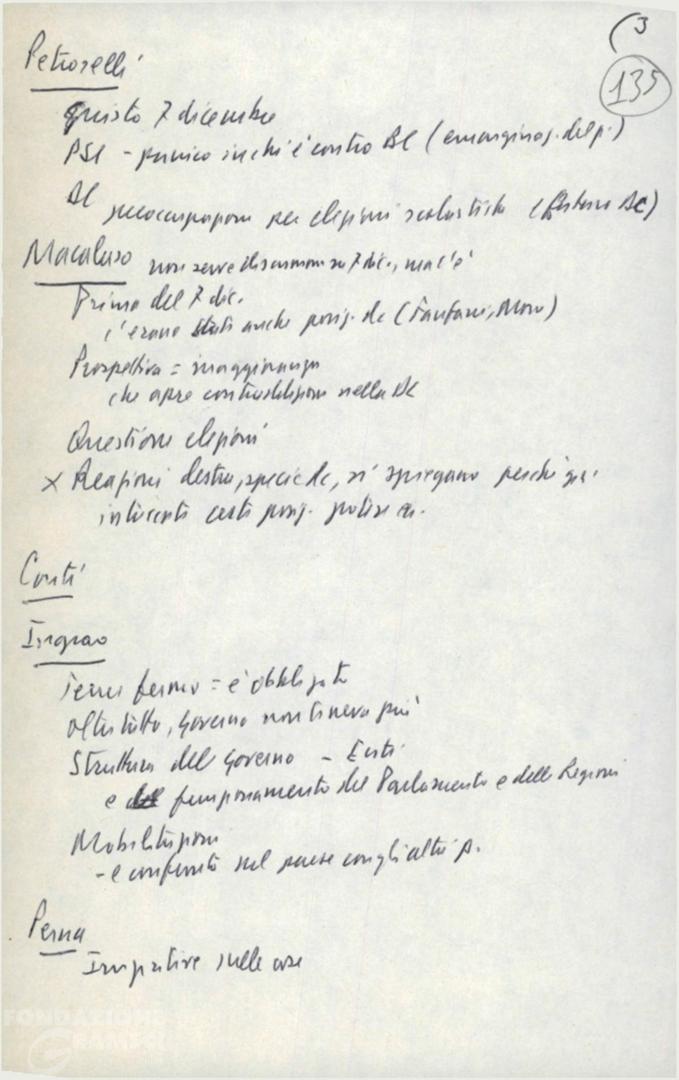 (3
135
Petroselli
Giusto 7 dicembre
PSI - panico in chi è contro BC (emarginaz. del p.)
DC preoccupazioni per elezioni scolastiche (esterno DC)
Macaluso non serve discussione su 7 dic., ma c'è
Prima del 7 dic.
c'erano stati anche posiz. dc (Fanfani, Moro)
Prospettiva = maggioranza
che apre contraddizioni nella DC
Questione elezioni
x Reazioni destra, specie dc, si spiegano perché
certe posiz. politica.
Conti
Ingrao
Tener fermo = è obbligato
oltretutto, Governo non teneva più
Struttura del Governo - Enti
e funzionamento del Parlamento e delle Regioni
Mobilitazioni
- e confronto nel paese con gli altri p.
Perna
Iniziative sulle cose
FONDAZIONE
GRAMSCI